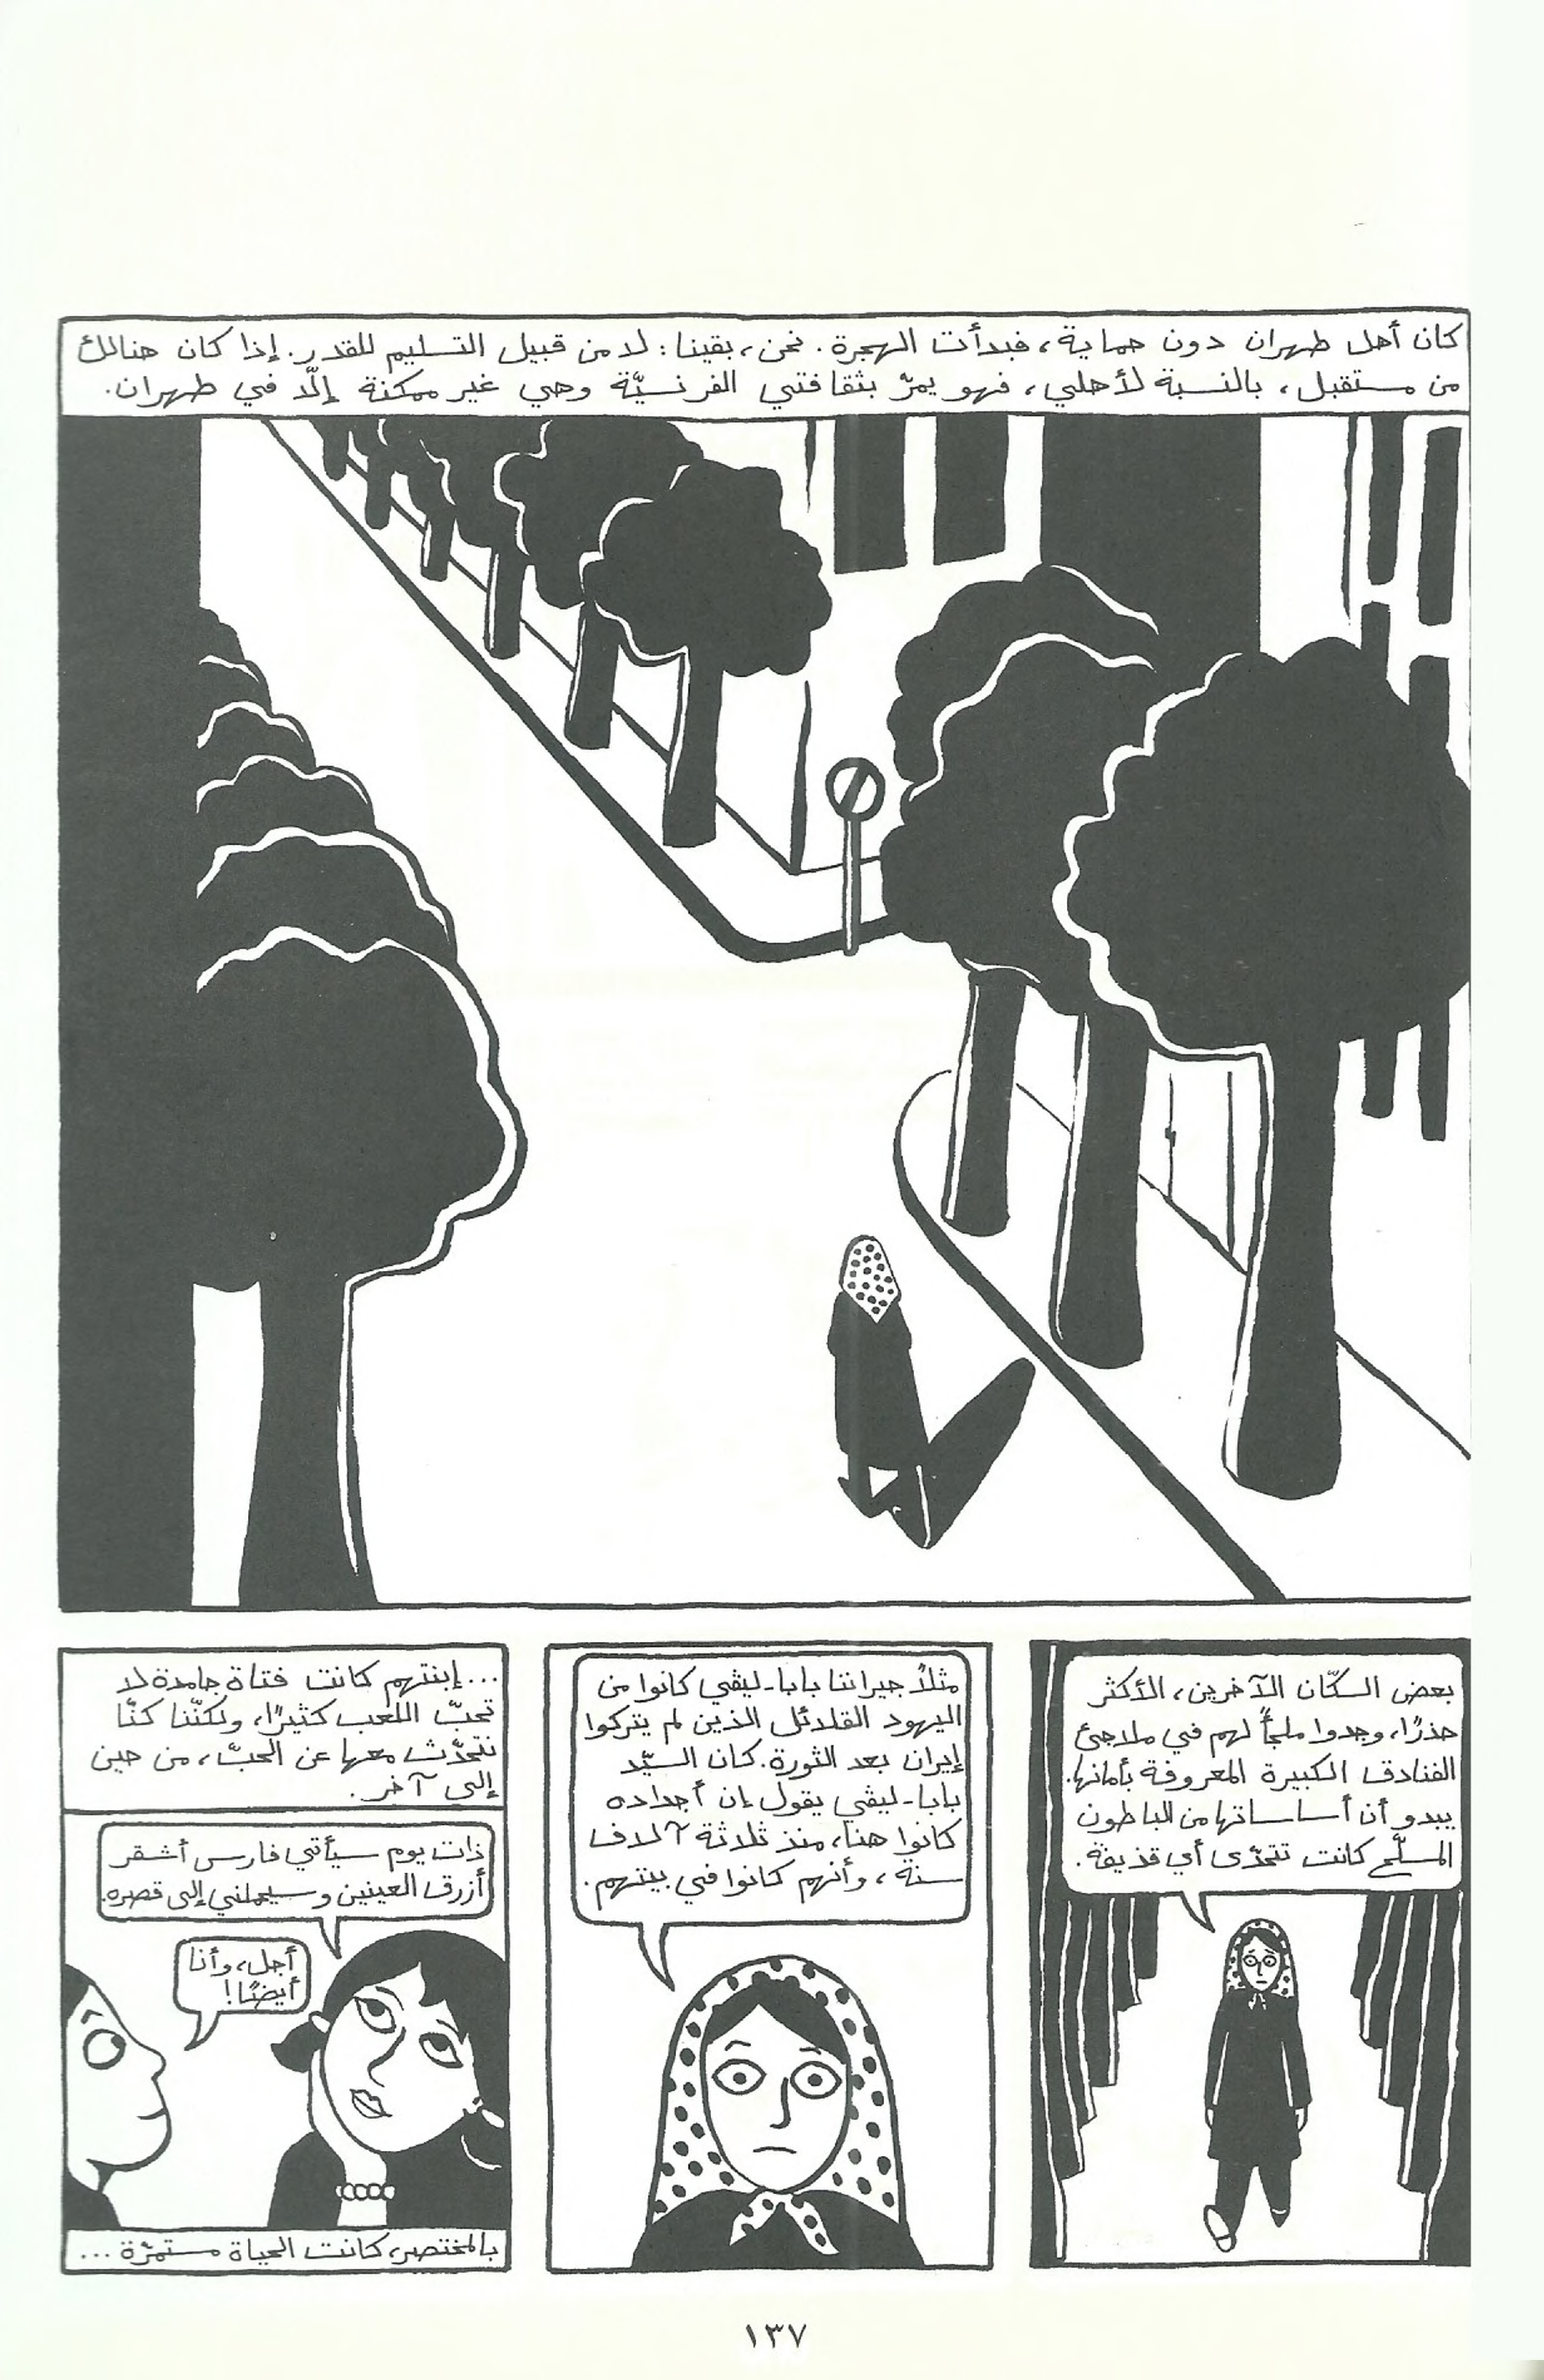 كان أهل طهران دون حماية، فبدأت الهجرة. نحن، بقينا: لا من قبيل التسليم للقدر. إذا كان هنالك
من مستقبل، بالنسبة لأهلي، فهو يمرّ بثقافتي الفرنسيّة وهي غير ممكنة إلّا في طهران.
بعض السكّان الآخرين، الأكثر
حذرًا، وجدوا ملجأً لهم في ملاجئ
الفنادق الكبيرة المعروفة بأمانها.
يبدو أن أساساتها من الباطون
المسلّح كانت تتحدّى أي قذيفة.
مثلاً جيراننا بابا-ليڤي كانوا من
اليهود القلائل الذين لم يتركوا
إيران بعد الثورة. كان السيّد
بابا-ليڤي يقول إن أجداده
كانوا هنا، منذ ثلاثة آلاف
سنة، وأنهم كانوا في بيتهم.
...إبنتهم كانت فتاة جامدة لا
تحبّ اللعب كثيرًا، ولكنّنا كنّا
نتحدّث معها عن الحبّ، من حين
إلى آخر.
ذات يوم سيأتي فارس أشقر
أزرق العينين وسيحملني إلى قصره.
أجل، وأنا
أيضًا!
بالمختصر، كانت الحياة مستمرّة...
١٣٧